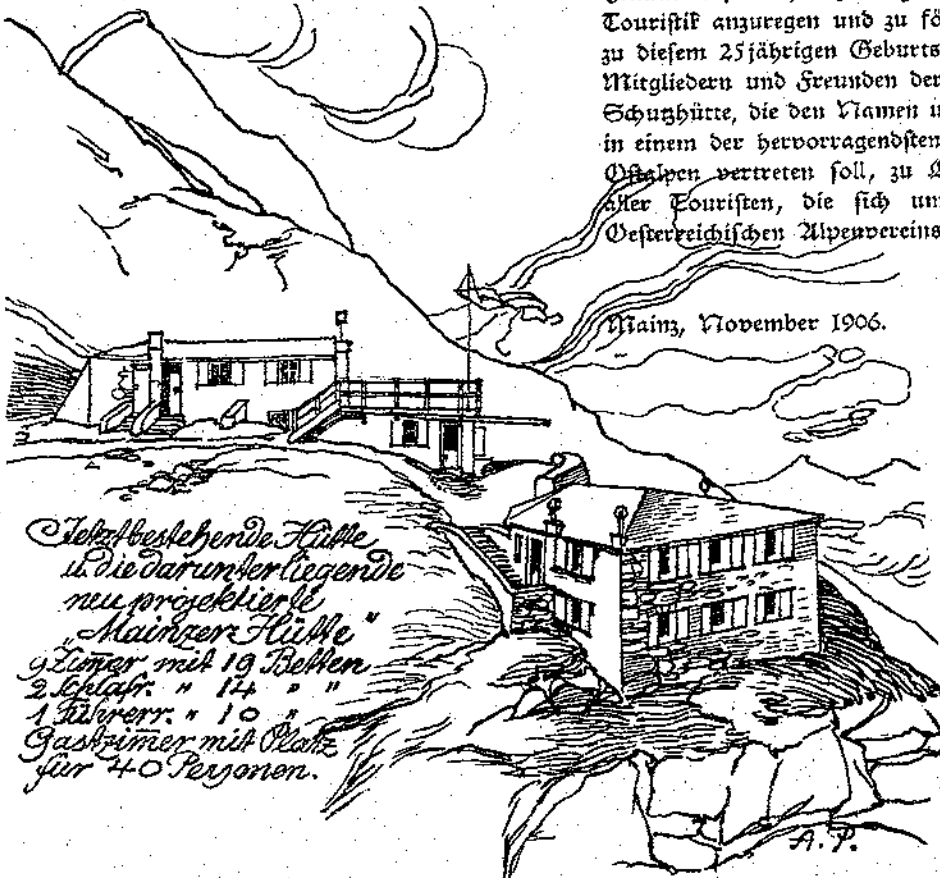 Touristik anzuregen und zu fö
zu diesem 25jährigen Geburts
Mitgliedern und Freunden der
Schutzhütte, die den Namen u
in einem der hervorragendsten
Ostalpen vertreten soll, zu
aller Touristen, die sich um
Oesterreichischen Alpenvereins
Mainz, November 1906.
Jetzt bestehende Hütte
u. die darunter liegende
neu projektierte
„Mainzer Hütte"
9 Zimer mit 19 Betten
2 Schlafr. " 14 " "
1 Führerr. " 10 "
Gastzimer mit Platz
für 40 Personen.
A. P.